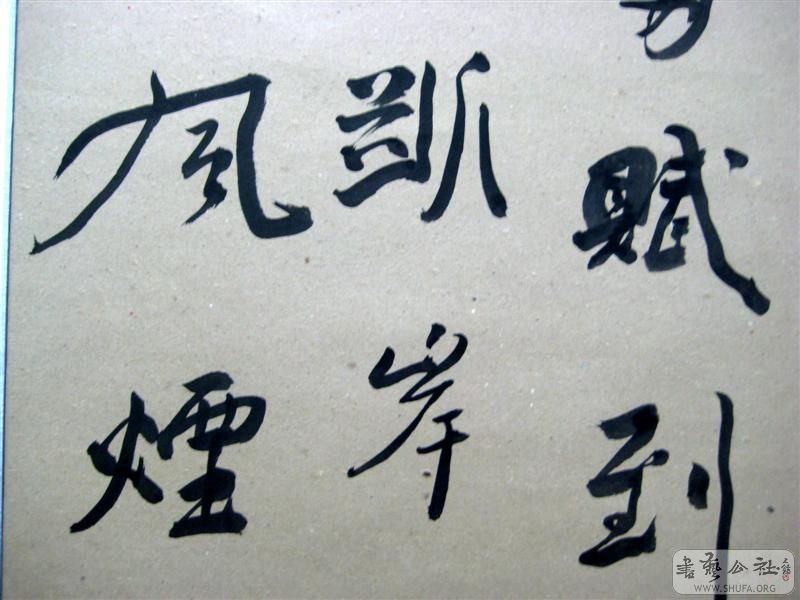 賦到
斷岸
風煙
書藝公社
WWW.SHUFA.ORG